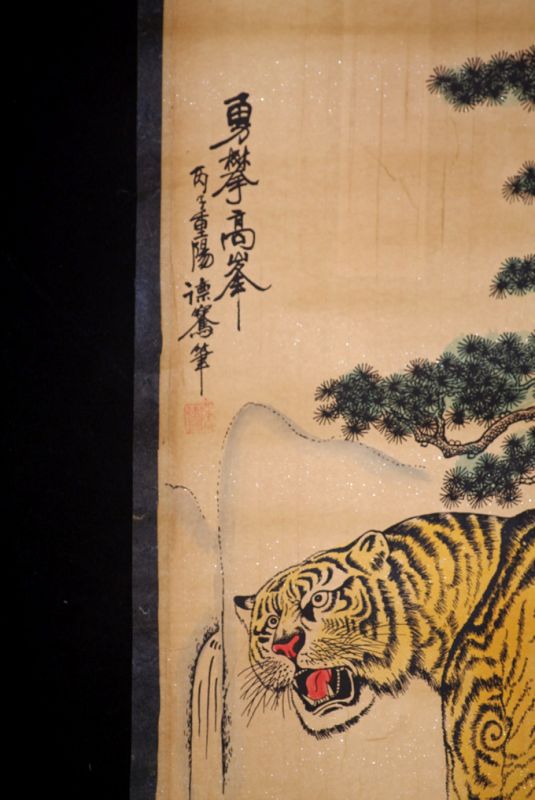 勇攀高峯
丙子重陽 筆